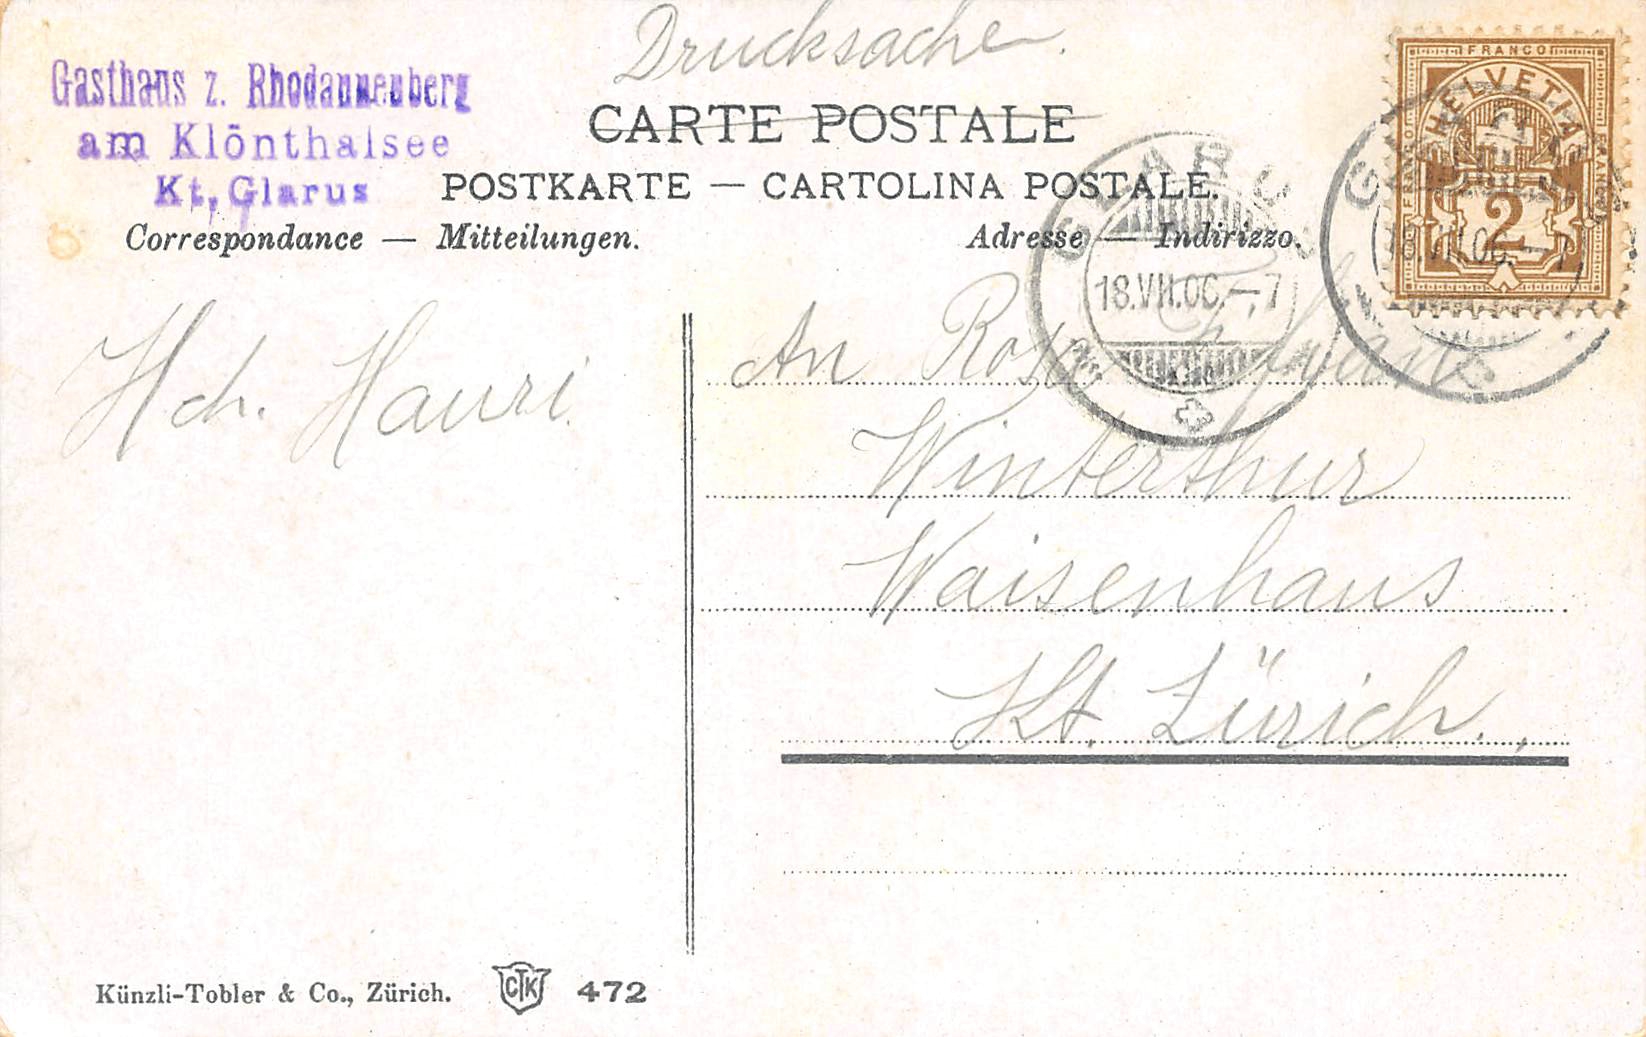 Drucksache.
Gasthaus z. Rhodannenberg
am Klönthalsee
Kt. Glarus
CARTE POSTALE
POSTKARTE — CARTOLINA POSTALE.
Correspondance — Mitteilungen.
Adresse — Indirizzo.
FRANCO
HELVETIA
FRANCO
FRANCO
2
GLARUS
18.VII.06.–7
18.VII.06.–7
Hch. Hauri.
An Rosa
Winterthur
Waisenhaus
Kt. Zürich.
Künzli-Tobler & Co., Zürich.
CTK
472